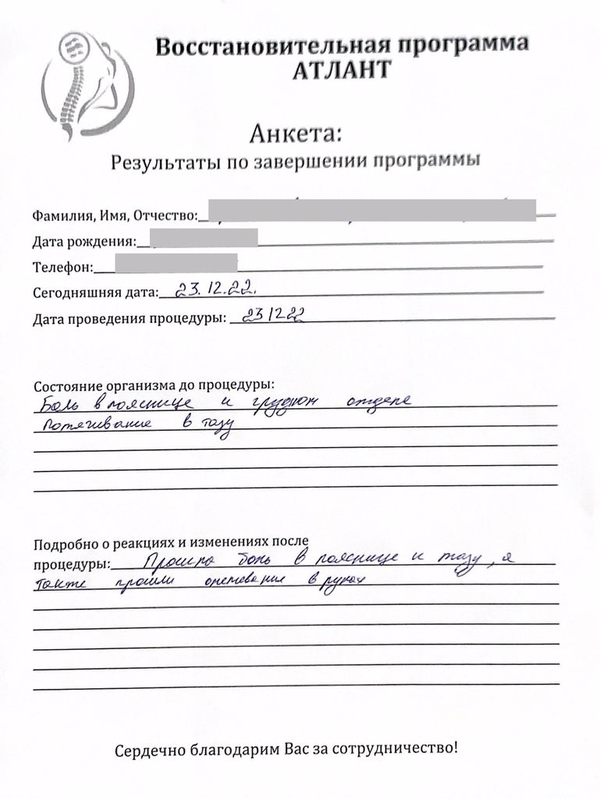 Восстановительная программа
АТЛАНТ
Анкета:
Результаты по завершении программы
Фамилия, Имя, Отчество:
Дата рождения:
Телефон:
Сегодняшняя дата: 23.12.22.
Дата проведения процедуры: 23 12 22
Состояние организма до процедуры:
Боль в пояснице и грудном отделе
Потягивание в тазу
Подробно о реакциях и изменениях после
процедуры: Прошла боль в пояснице и тазу, а
также прошли онемевания в руках
Сердечно благодарим Вас за сотрудничество!